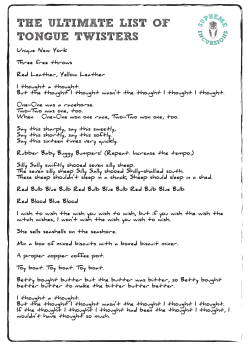 THE ULTIMATE LIST OF
TONGUE TWISTERS
SUPREME
INCURSIONS
Unique New York
Three free throws
Red Leather, Yellow Leather
I thought a thought.
But the thought I thought wasn't the thought I thought I thought.
One-One was a racehorse.
Two-Two was one, too.
When One-One won one race, Two-Two won one, too.
Say this sharply, say this sweetly,
Say this shortly, say this softly,
Say this sixteen times very quickly.
Rubber Baby Buggy Bumpers! (Repeat. Increase the tempo.)
Silly Sally swiftly shooed seven silly sheep.
The seven silly sheep Silly Sally shooed Shilly-shallied south.
These sheep shouldn't sleep in a shack; Sheep should sleep in a shed.
Red Bulb Blue Bulb Red Bulb Blue Bulb Red Bulb Blue Bulb
Red Blood Blue Blood
I wish to wish the wish you wish to wish, but if you wish the wish the
witch wishes, I won't wish the wish you wish to wish.
She sells seashells on the seashore.
Mix a box of mixed biscuits with a boxed biscuit mixer.
A proper copper coffee pot.
Toy boat. Toy boat. Toy boat.
Betty bought butter but the butter was bitter, so Betty bought
better butter to make the bitter butter better.
I thought a thought.
But the thought I thought wasn't the thought I thought I thought.
If the thought I thought I thought had been the thought I thought, I
wouldn't have thought so much.